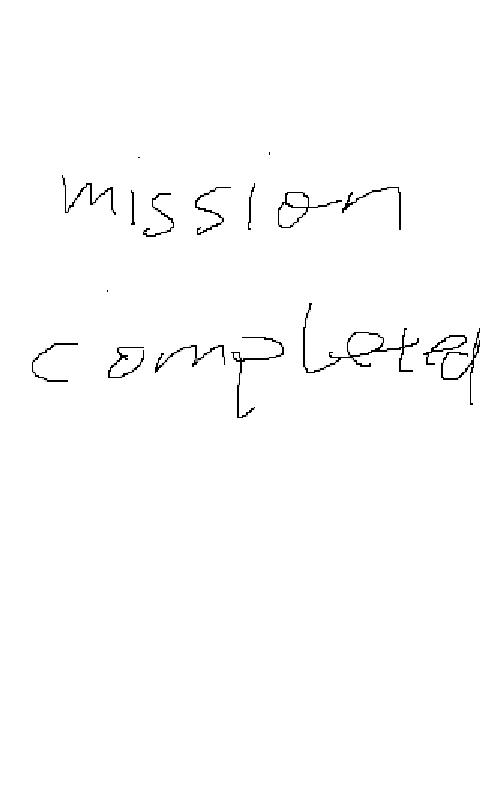 mission
completed